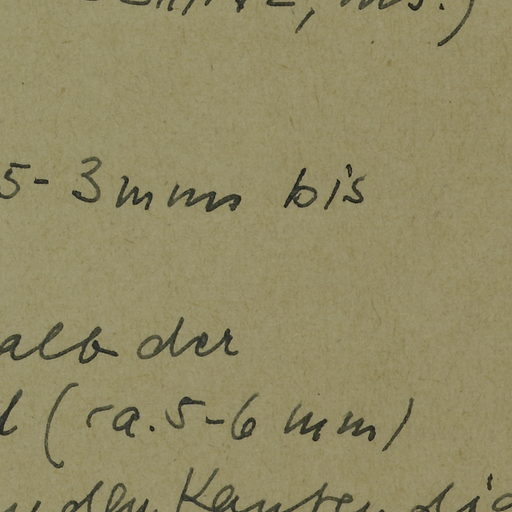 5-3mm bis
alb der
(ca. 5-6 mm)
den Kanten die